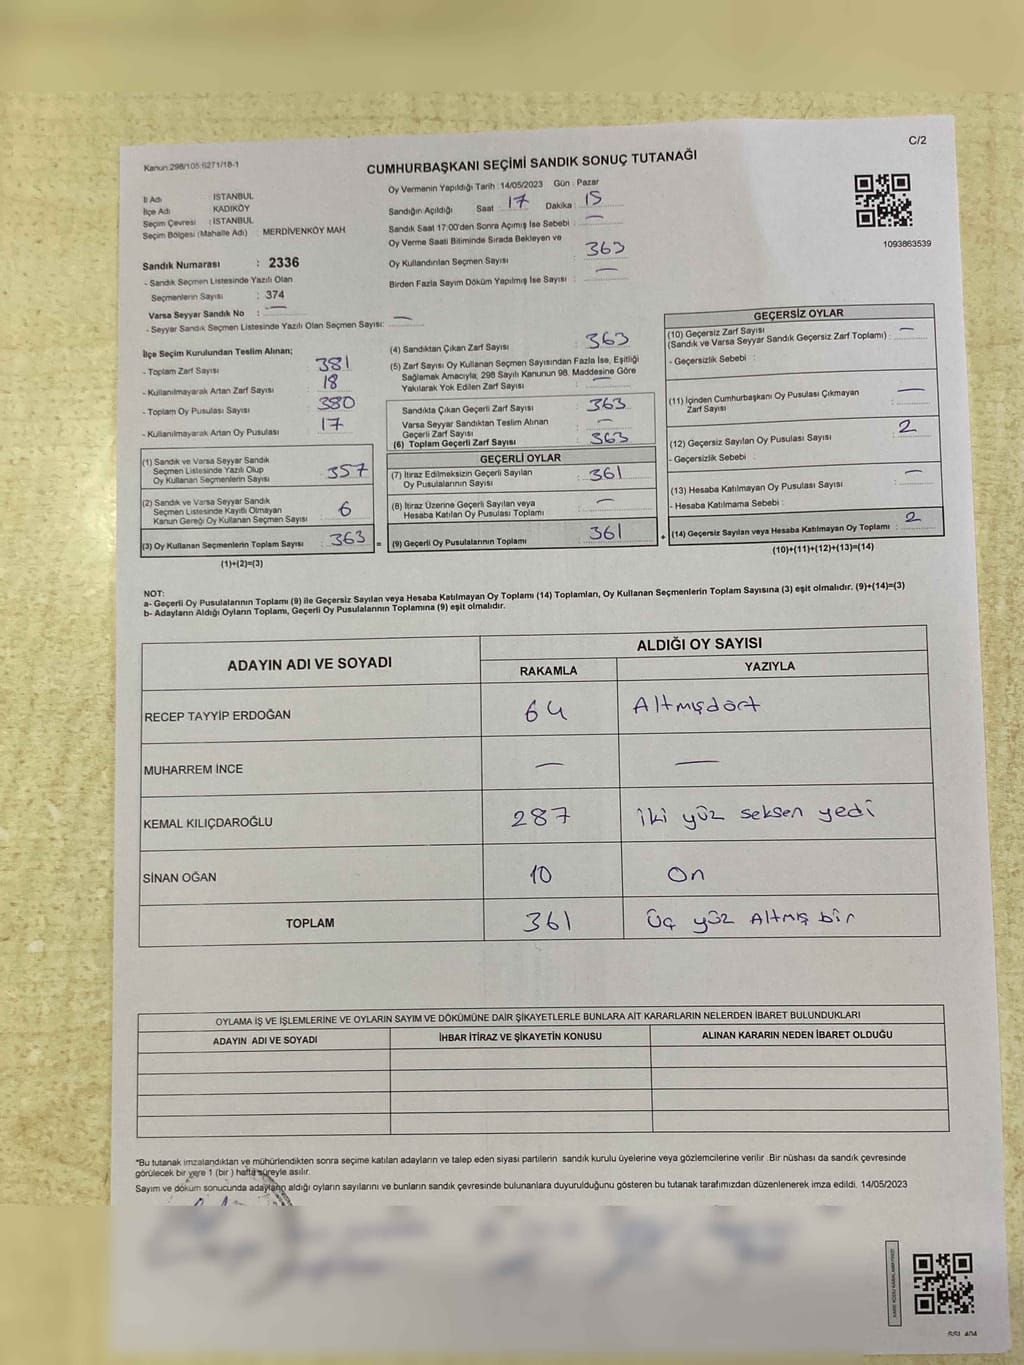 C/2
Kanun:298/105:6271/18-1
CUMHURBAŞKANI SEÇİMİ SANDIK SONUÇ TUTANAĞI
İl Adı : İSTANBUL
İlçe Adı KADIKÖY
Seçim Çevresi : İSTANBUL
Seçim Bölgesi (Mahalle Adı) MERDİVENKÖY MAH
Sandık Numarası : 2336
- Sandık Seçmen Listesinde Yazılı Olan
Seçmenlerin Sayısı : 374
Varsa Seyyar Sandık No : —
- Seyyar Sandık Seçmen Listesinde Yazılı Olan Seçmen Sayısı: —
Oy Vermenin Yapıldığı Tarih :14/05/2023 Gün : Pazar
Sandığın Açıldığı Saat : 17 Dakika : 15
Sandık Saat 17:00'den Sonra Açımış İse Sebebi : —
Oy Verme Saati Bitiminde Sırada Bekleyen ve
Oy Kullandırılan Seçmen Sayısı : 363
Birden Fazla Sayım Döküm Yapılmış İse Sayısı : —
1093863539
İlçe Seçim Kurulundan Teslim Alınan;
- Toplam Zarf Sayısı : 381
- Kullanılmayarak Artan Zarf Sayısı : 18
- Toplam Oy Pusulası Sayısı : 380
- Kullanılmayarak Artan Oy Pusulası : 17
(1) Sandık ve Varsa Seyyar Sandık
Seçmen Listesinde Yazılı Olup
Oy Kullanan Seçmenlerin Sayısı : 357
(2) Sandık ve Varsa Seyyar Sandık
Seçmen Listesinde Kayıtlı Olmayan
Kanun Gereği Oy Kullanan Seçmen Sayısı : 6
(3) Oy Kullanan Seçmenlerin Toplam Sayısı : 363 =
(1)+(2)=(3)
(4) Sandıktan Çıkan Zarf Sayısı : 363
(5) Zarf Sayısı Oy Kullanan Seçmen Sayısından Fazla İse, Eşitliği
Sağlamak Amacıyla, 298 Sayılı Kanunun 98. Maddesine Göre
Yakılarak Yok Edilen Zarf Sayısı : —
Sandıkta Çıkan Geçerli Zarf Sayısı : 363
Varsa Seyyar Sandıktan Teslim Alınan
Geçerli Zarf Sayısı : —
(6) Toplam Geçerli Zarf Sayısı : 363
GEÇERLİ OYLAR
(7) İtiraz Edilmeksizin Geçerli Sayılan
Oy Pusulalarının Sayısı : 361
(8) İtiraz Üzerine Geçerli Sayılan veya
Hesaba Katılan Oy Pusulası Toplamı : —
(9) Geçerli Oy Pusulalarının Toplamı : 361 +
GEÇERSİZ OYLAR
(10) Geçersiz Zarf Sayısı
(Sandık ve Varsa Seyyar Sandık Geçersiz Zarf Toplamı) : —
- Geçersizlik Sebebi :
(11) İçinden Cumhurbaşkanı Oy Pusulası Çıkmayan
Zarf Sayısı : —
(12) Geçersiz Sayılan Oy Pusulası Sayısı : 2
- Geçersizlik Sebebi :
(13) Hesaba Katılmayan Oy Pusulası Sayısı : —
- Hesaba Katılmama Sebebi :
(14) Geçersiz Sayılan veya Hesaba Katılmayan Oy Toplamı : 2
(10)+(11)+(12)+(13)=(14)
NOT:
a- Geçerli Oy Pusulalarının Toplamı (9) ile Geçersiz Sayılan veya Hesaba Katılmayan Oy Toplamı (14) Toplamları, Oy Kullanan Seçmenlerin Toplam Sayısına (3) eşit olmalıdır. (9)+(14)=(3)
b- Adayların Aldığı Oyların Toplamı, Geçerli Oy Pusulalarının Toplamına (9) eşit olmalıdır.
ADAYIN ADI VE SOYADI ALDIĞI OY SAYISI
RAKAMLA YAZIYLA
RECEP TAYYİP ERDOĞAN 64 Altmışdört
MUHARREM İNCE — —
KEMAL KILIÇDAROĞLU 287 iki yüz seksen yedi
SİNAN OĞAN 10 On
TOPLAM 361 üç yüz Altmış bir
OYLAMA İŞ VE İŞLEMLERİNE VE OYLARIN SAYIM VE DÖKÜMÜNE DAİR ŞİKAYETLERLE BUNLARA AİT KARARLARIN NELERDEN İBARET BULUNDUKLARI
ADAYIN ADI VE SOYADI İHBAR İTİRAZ VE ŞİKAYETİN KONUSU ALINAN KARARIN NEDEN İBARET OLDUĞU
*Bu tutanak imzalandıktan ve mühürlendikten sonra seçime katılan adayların ve talep eden siyasi partilerin sandık kurulu üyelerine veya gözlemcilerine verilir .Bir nüshası da sandık çevresinde
görülecek bir yere 1 (bir ) hafta süreyle asılır.
Sayım ve döküm sonucunda adayların aldığı oyların sayılarını ve bunların sandık çevresinde bulunanlara duyurulduğunu gösteren bu tutanak tarafımızdan düzenlenerek imza edildi. 14/05/2023